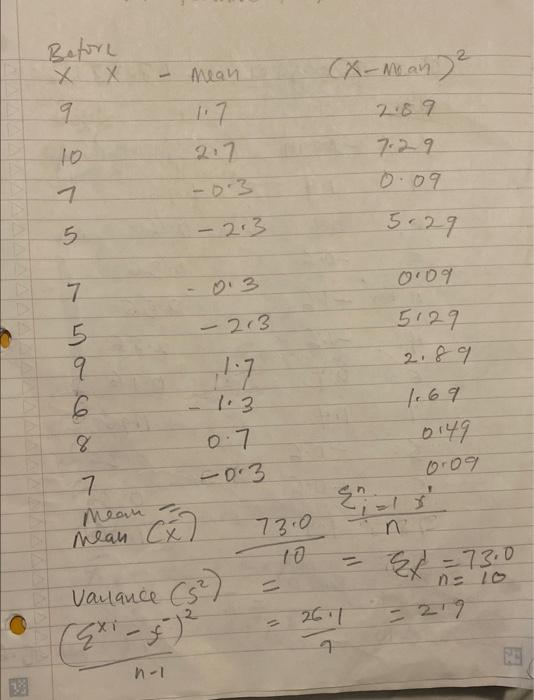 Before
X X - Mean (X-Mean)²
9 1.7 2.89
10 2.7 7.29
7 -0.3 0.09
5 -2.3 5.29
7 -0.3 0.09
5 -2.3 5.29
9 1.7 2.89
6 -1.3 1.69
8 0.7 0.49
7 -0.3 0.09
Mean =
Mean (x̄) 73.0 Σⁿi=1
10 = n
Σx = 73.0
n = 10
Variance (S²) =
(Σxi - )² = 26.1 = 2.9
n-1 9